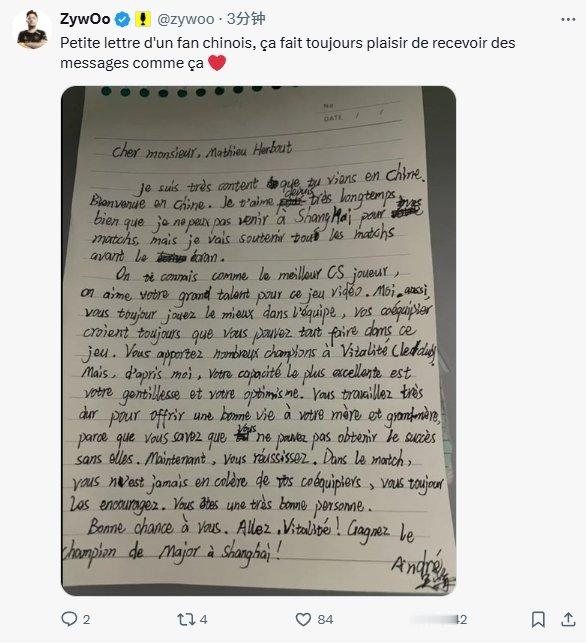 ZywOo @zywoo · 3分钟
Petite lettre d'un fan chinois, ça fait toujours plaisir de recevoir des
messages comme ça
No
DATE / /
Cher monsieur, Mathieu Herbaut
Je suis très content que tu viens en Chine.
Bienvenue en Chine. Je t'aime depuis très longtemps
bien que je ne peux pas venir à ShangHai pour
matchs, mais je vais soutenir tous les matchs
avant le écran.
On te connais comme le meilleur CS joueur,
on aime votre grand talent pour ce jeu vidéo. Moi aussi,
vous toujour jouez le mieux dans l'équipe, vos coéquipier
croient toujours que vous pouvez tout faire dans ce
jeu. Vous apportez nombreux champions à Vitalité (le club)
Mais, d'apris moi, votre capacité le plus excellente est
votre gentillesse et votre optimisme. Vous travaillez très
dur pour offrir une bonne vie à votre mère et grandmère,
parce que vous savez que vous ne pouvez pas obtenir le succès
sans elles. Maintenant, vous réussissez. Dans le match,
vous n'est jamais en colère de vos coéquipiers, vous toujour
Las encouragez. Vous êtes une très bonne personne.
Bonne chance à vous. Allez, Vitalité! Gagnez le
champion de Major à Shanghai!
André
2
4
84